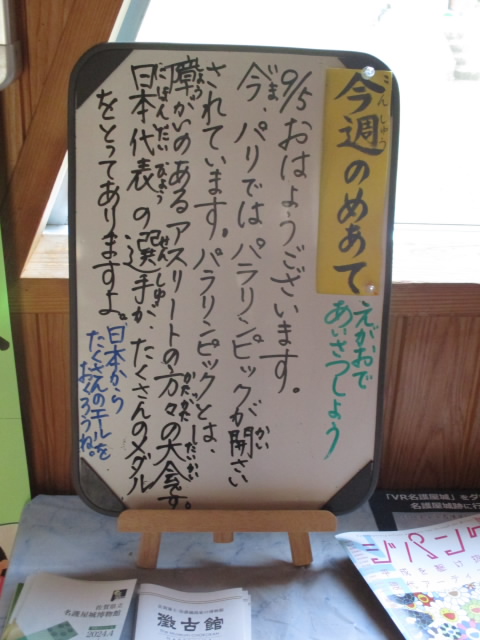 今週のめあて
こんしゅう
えがおで
あいさつしよう
9/5 おはようございます。
今、パリではパラリンピックが開さい
されています。パラリンピックとは、
障がいのあるアスリートの方々の大会です。
日本代表の選手が、たくさんのメダル
をとってありますよ。
日本から
たくさんのエールを
おくろうね。
「VR名護屋城」をダ
名護屋城跡に行
ジパング
佐賀県立
名護屋城博物館
2024.4
徴古館